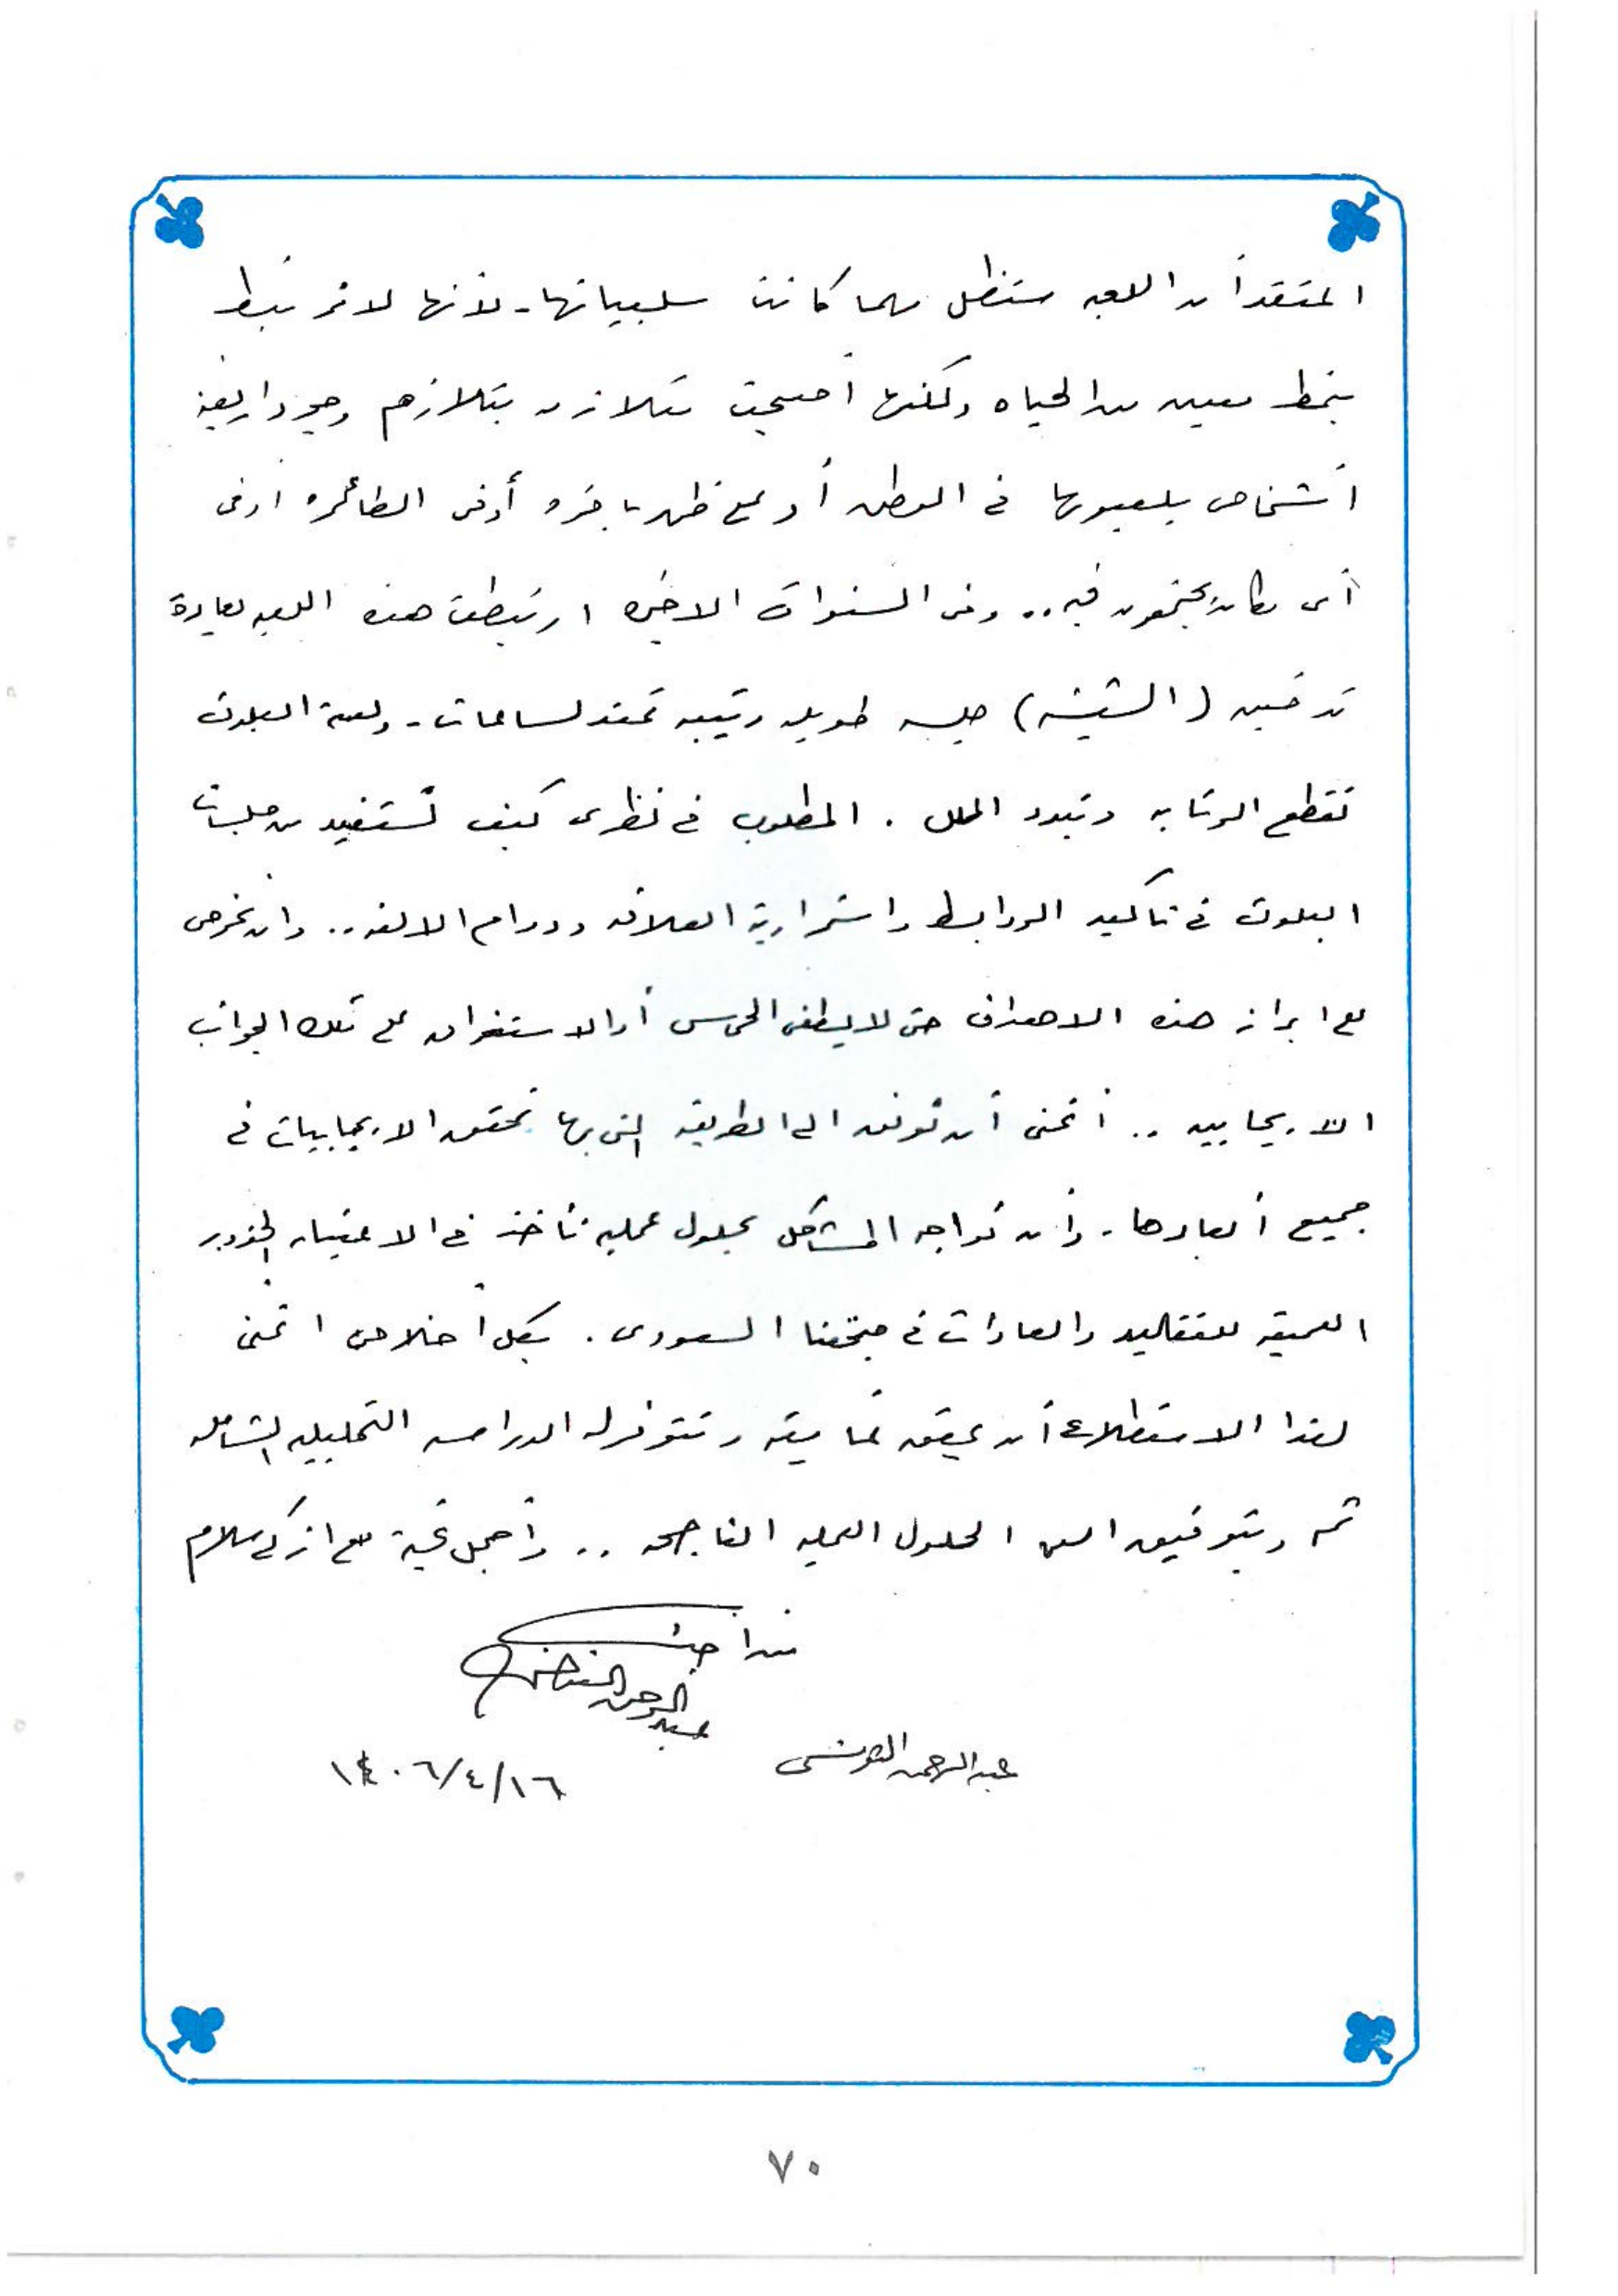 اعتقد أن اللعبه ستظل مهما كانت سلبياتها - لأنها لا ترتبط
بنمط معين من الحياه ولكنها أصبحت تتلازم بتلازم وجود اربعة
أشخاص يلعبونها في الوطن أو على ظهر باخره أو في الطائره او في
أى مكان يجتمعون فيه .. وفى السنوات الاخيره ارتبطت هذه اللعبه بعادة
تدخين (الشيشه) جلسه طويله رتيبه تمتد لساعات - ولعبة البلوت
تقطع الرتابه وتبدد الملل . المطلوب في نظرى كيف نستفيد من جلسات
البلوت في تأكيد الروابط واستمرارية العلاقه ودوام الالفه .. وان نحرص
على ابراز هذه الاهداف حتى لا يطغى الحمس أو الاستغراق على تلك الجوانب
الايجابيه .. أتمنى أن نوفق الى الطريقه التى بها نحقق الايجابيات في
جميع أبعادها - وأن نواجه المشاكل بحلول عمليه تأخذ في الاعتبار الجذور
العميقه للتقاليد والعادات في مجتمعنا السعودى . بكل أخلاص اتمنى
لهذا الاستطلاع أن يحقق غايته وتتوفر له الدراسه التحليليه الشامله
ثم وبتوفيق الله الحلول العمليه الناجحه .. وأجمل تحية مع ازكى سلام
عبدالرحمن التونسى
١٤٠٦/٤/١٦
٧٠